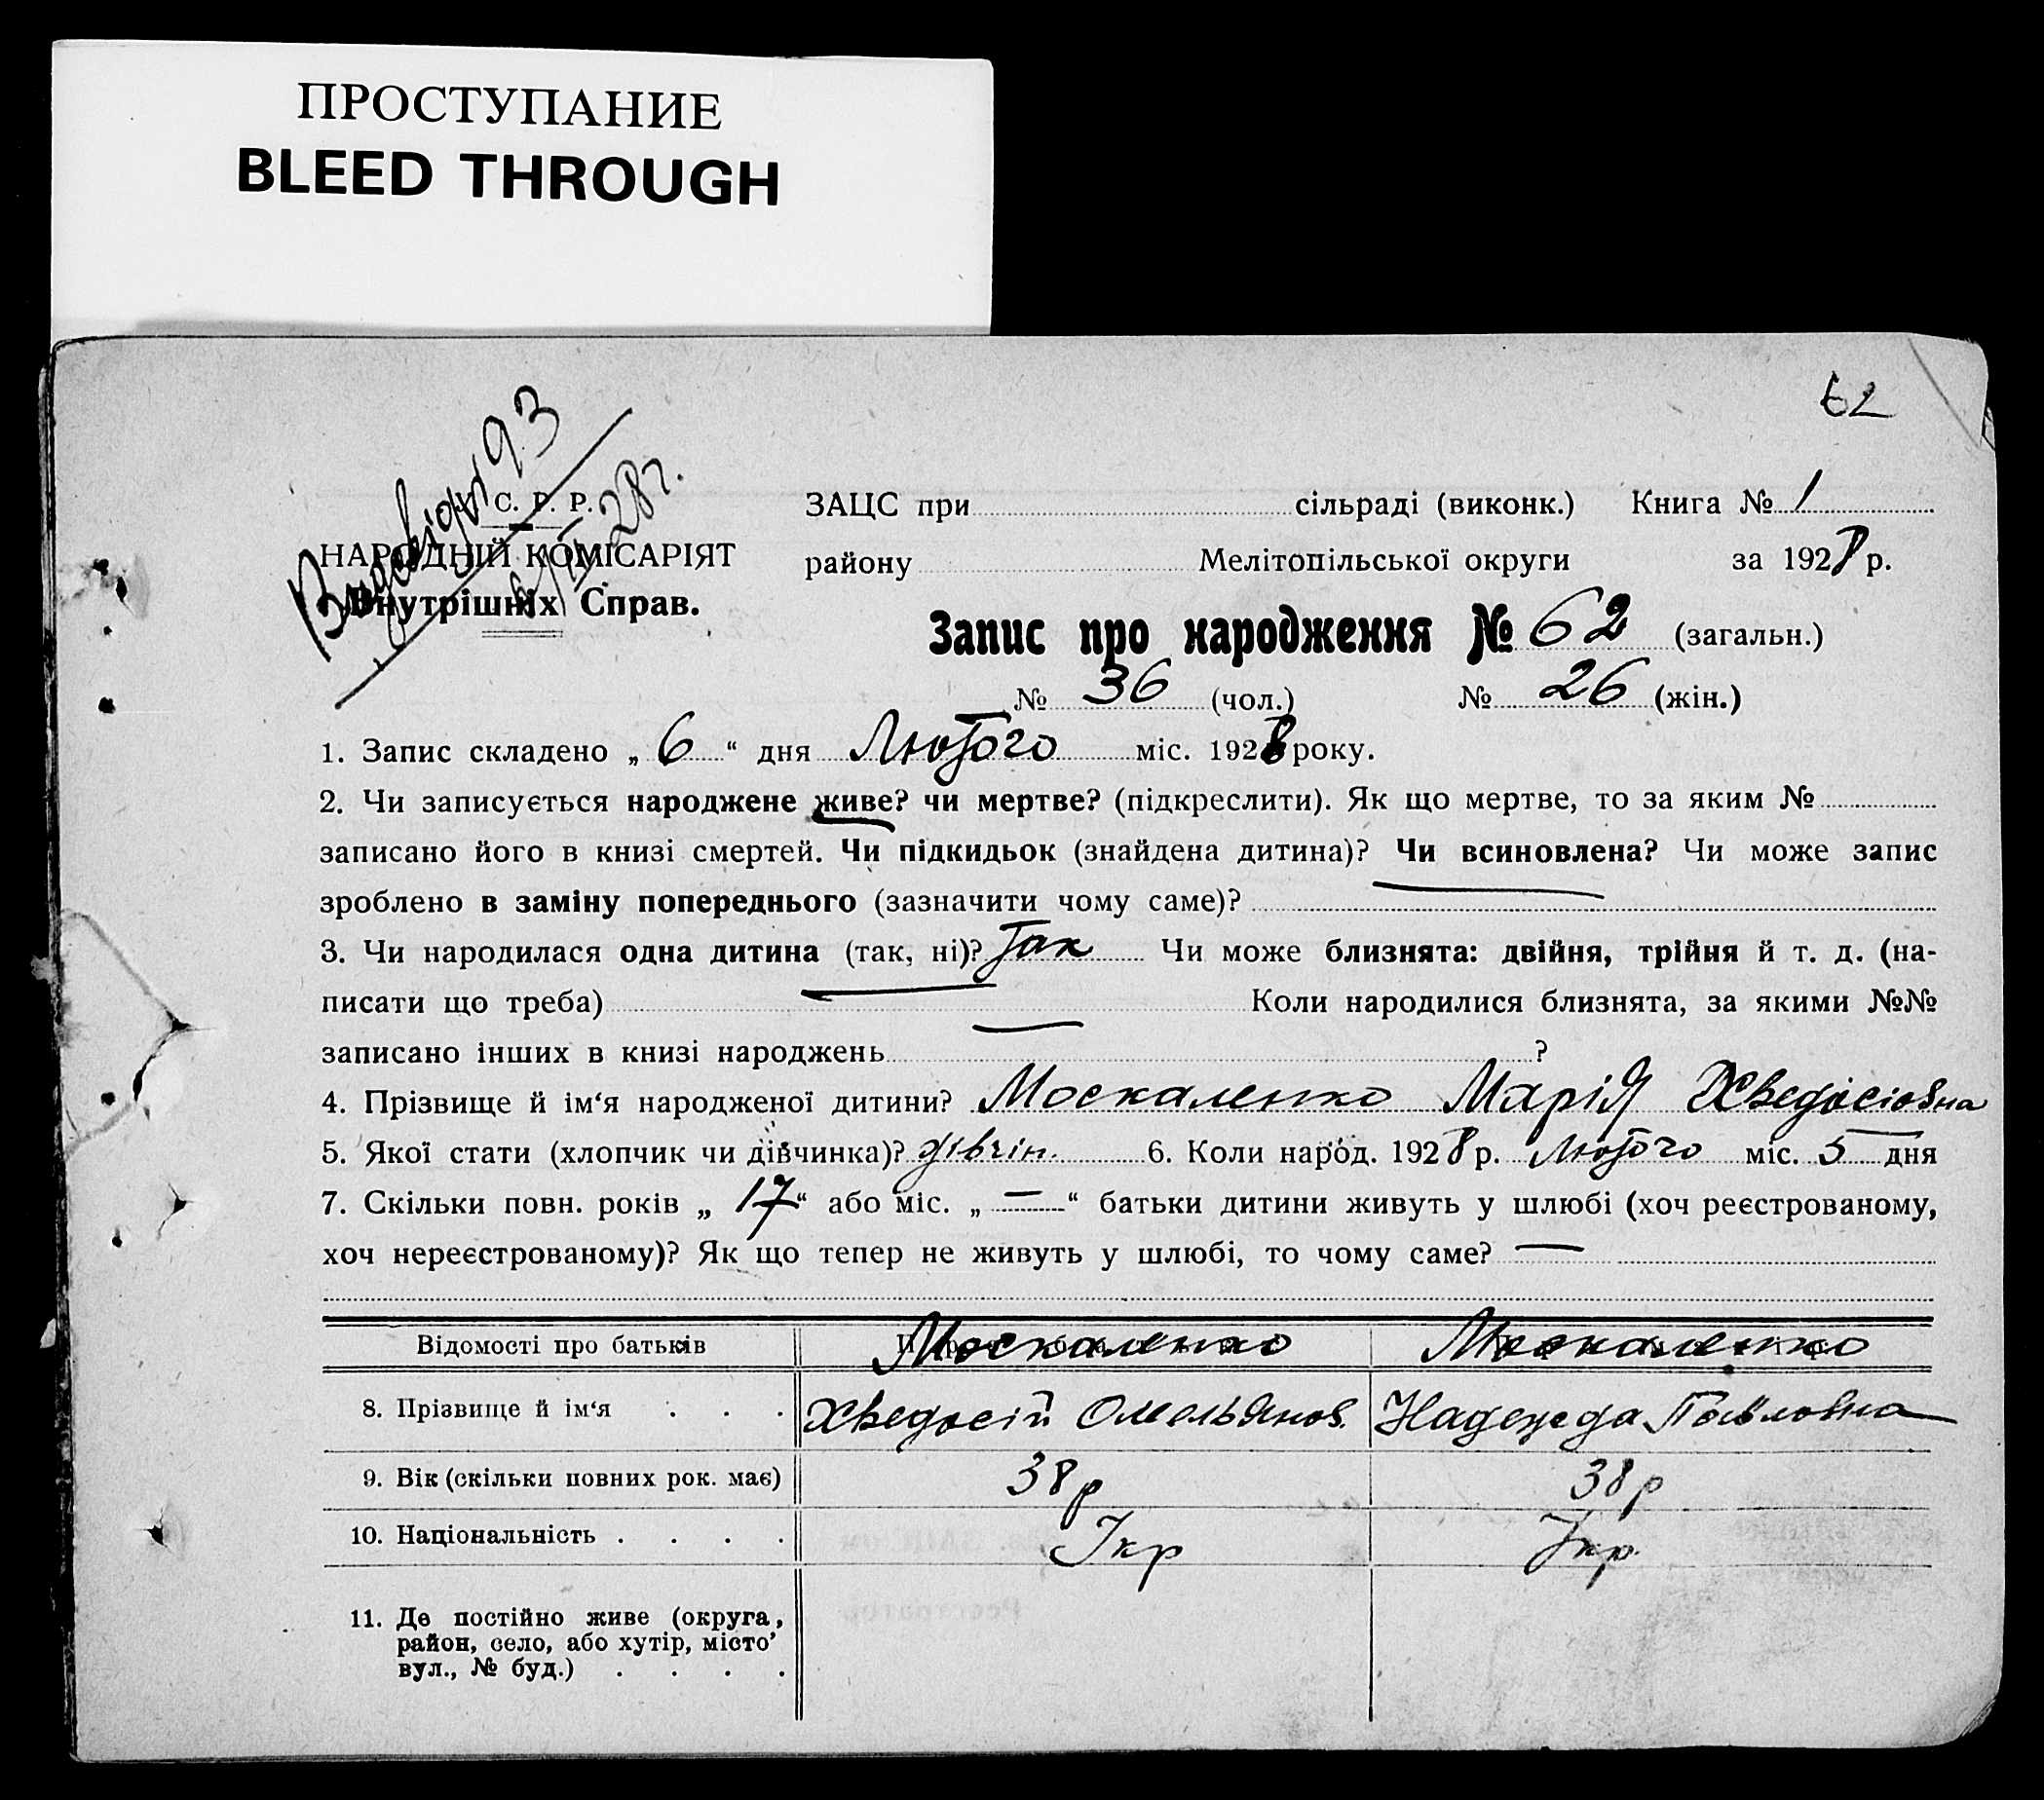 ПРОСТУПАНИЕ
BLEED THROUGH
62
Видсвідч 93
6/II 28 г.
У. С. Р. Р.
НАРОДНІЙ КОМІСАРІЯТ
Внутрішніх Справ.
ЗАЦС при сільраді (виконк.) Книга № 1
району Мелітопільської округи за 1928 р.
Запис про народження № 62 (загальн.)
№ 36 (чол.) № 26 (жін.)
1. Запис складено „ 6 “ дня Лютого міс. 1928 року.
2. Чи записується народжене живе? чи мертве? (підкреслити). Як що мертве, то за яким №
записано його в книзі смертей. Чи підкидьок (знайдена дитина)? Чи всиновлена? Чи може запис
зроблено в заміну попереднього (зазначити чому саме)? —
3. Чи народилася одна дитина (так, ні)? Так Чи може близнята: двійня, трійня й т. д. (на-
писати що треба) — Коли народилися близнята, за якими №№
записано інших в книзі народжень — ?
4. Прізвище й ім‘я народженої дитини? Москаленко Марія Хведосіовна
5. Якої стати (хлопчик чи дівчинка)? дівчін. 6. Коли народ. 1928 р. Лютого міс. 5 дня
7. Скільки повн. років „ 17 “ або міс. „ — “ батьки дитини живуть у шлюбі (хоч реєстрованому,
хоч нереєстрованому)? Як що тепер не живуть у шлюбі, то чому саме? —
Відомості про батьків Москаленко Москаленко
8. Прізвище й ім‘я . . . Хведосій Омельянов. Надежда Павловна
9. Вік (скільки повних рок. має) 38 р 38 р
10. Національність . . . . Укр Укр.
11. Де постійно живе (округа,
район, село, або хутір, місто’
вул., № буд.) . . . .